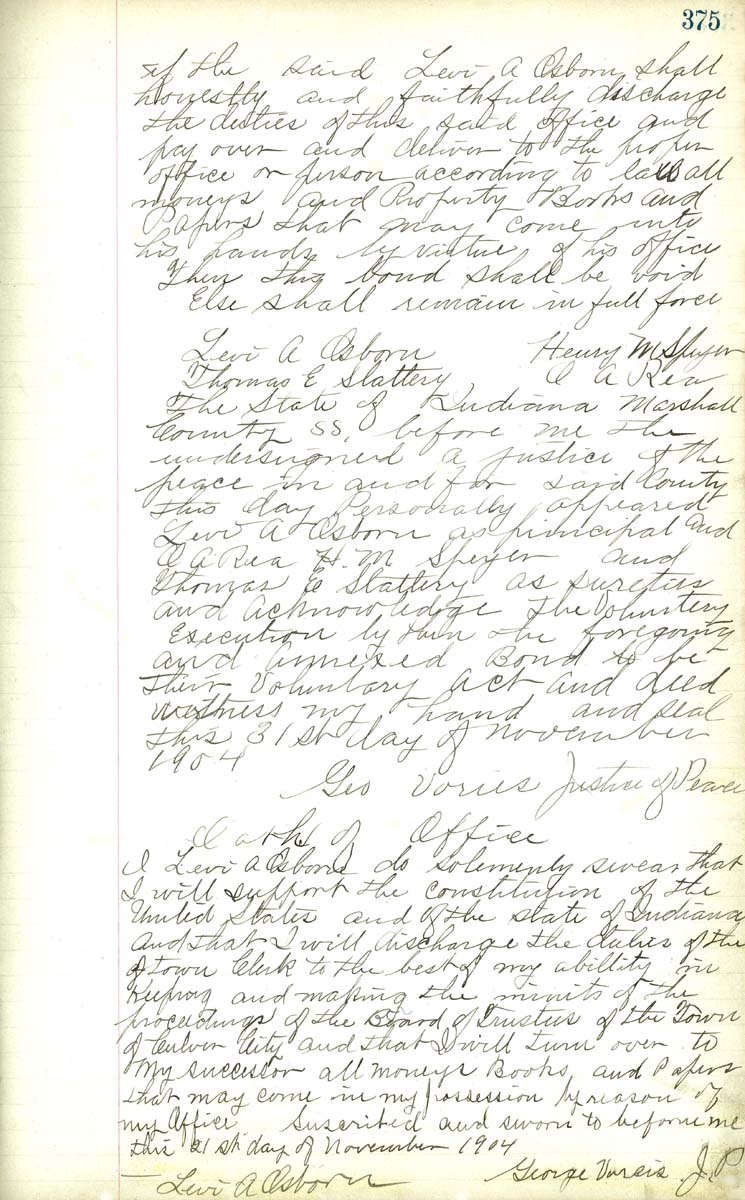 375
if the said Levi A Osborn shall
honestly and faithfully discharge
the duties of this said office and
pay over and deliver to the proper
office or person according to law all
moneys and Property Books and
Papers that may come unto
his hands by virtue of his office
Then this bond shall be void
Else shall remain in full force
Levi A Osborn Henry M Speyer
Thomas E Slattery O A Rea
The State of Indiana Marshall
County SS, before me the
undersigned a justice of the
peace in and for said County
this day Personally appeared
Levi A Osborn as principal and
O A Rea H. M Speyer and
Thomas E Slattery as sureties
and Acknowledge The Voluntery
Execution by them the foregoing
and Annexed Bond to be
their Voluntary Act and deed
witness my hand and seal
this 31st day of November
1904
Geo Vories Justice of Peace
Oath of Office
I Levi A Osborn do solemenly swear that
I will support the constitution of the
United States and of the state of Indiana
and that I will discharge the duties of the
of Town Clerk to the best of my abillity in
Keeping and making the minits of the
proceedings of the Board of Trustees of the Town
of Culver City and that I will turn over to
My successor all moneys Books and Papers
that may come in my possession by reason of
my Office Suscribed and sworn to before me
this 21st day of November 1904
Levi A Osborn George Voreis J.P